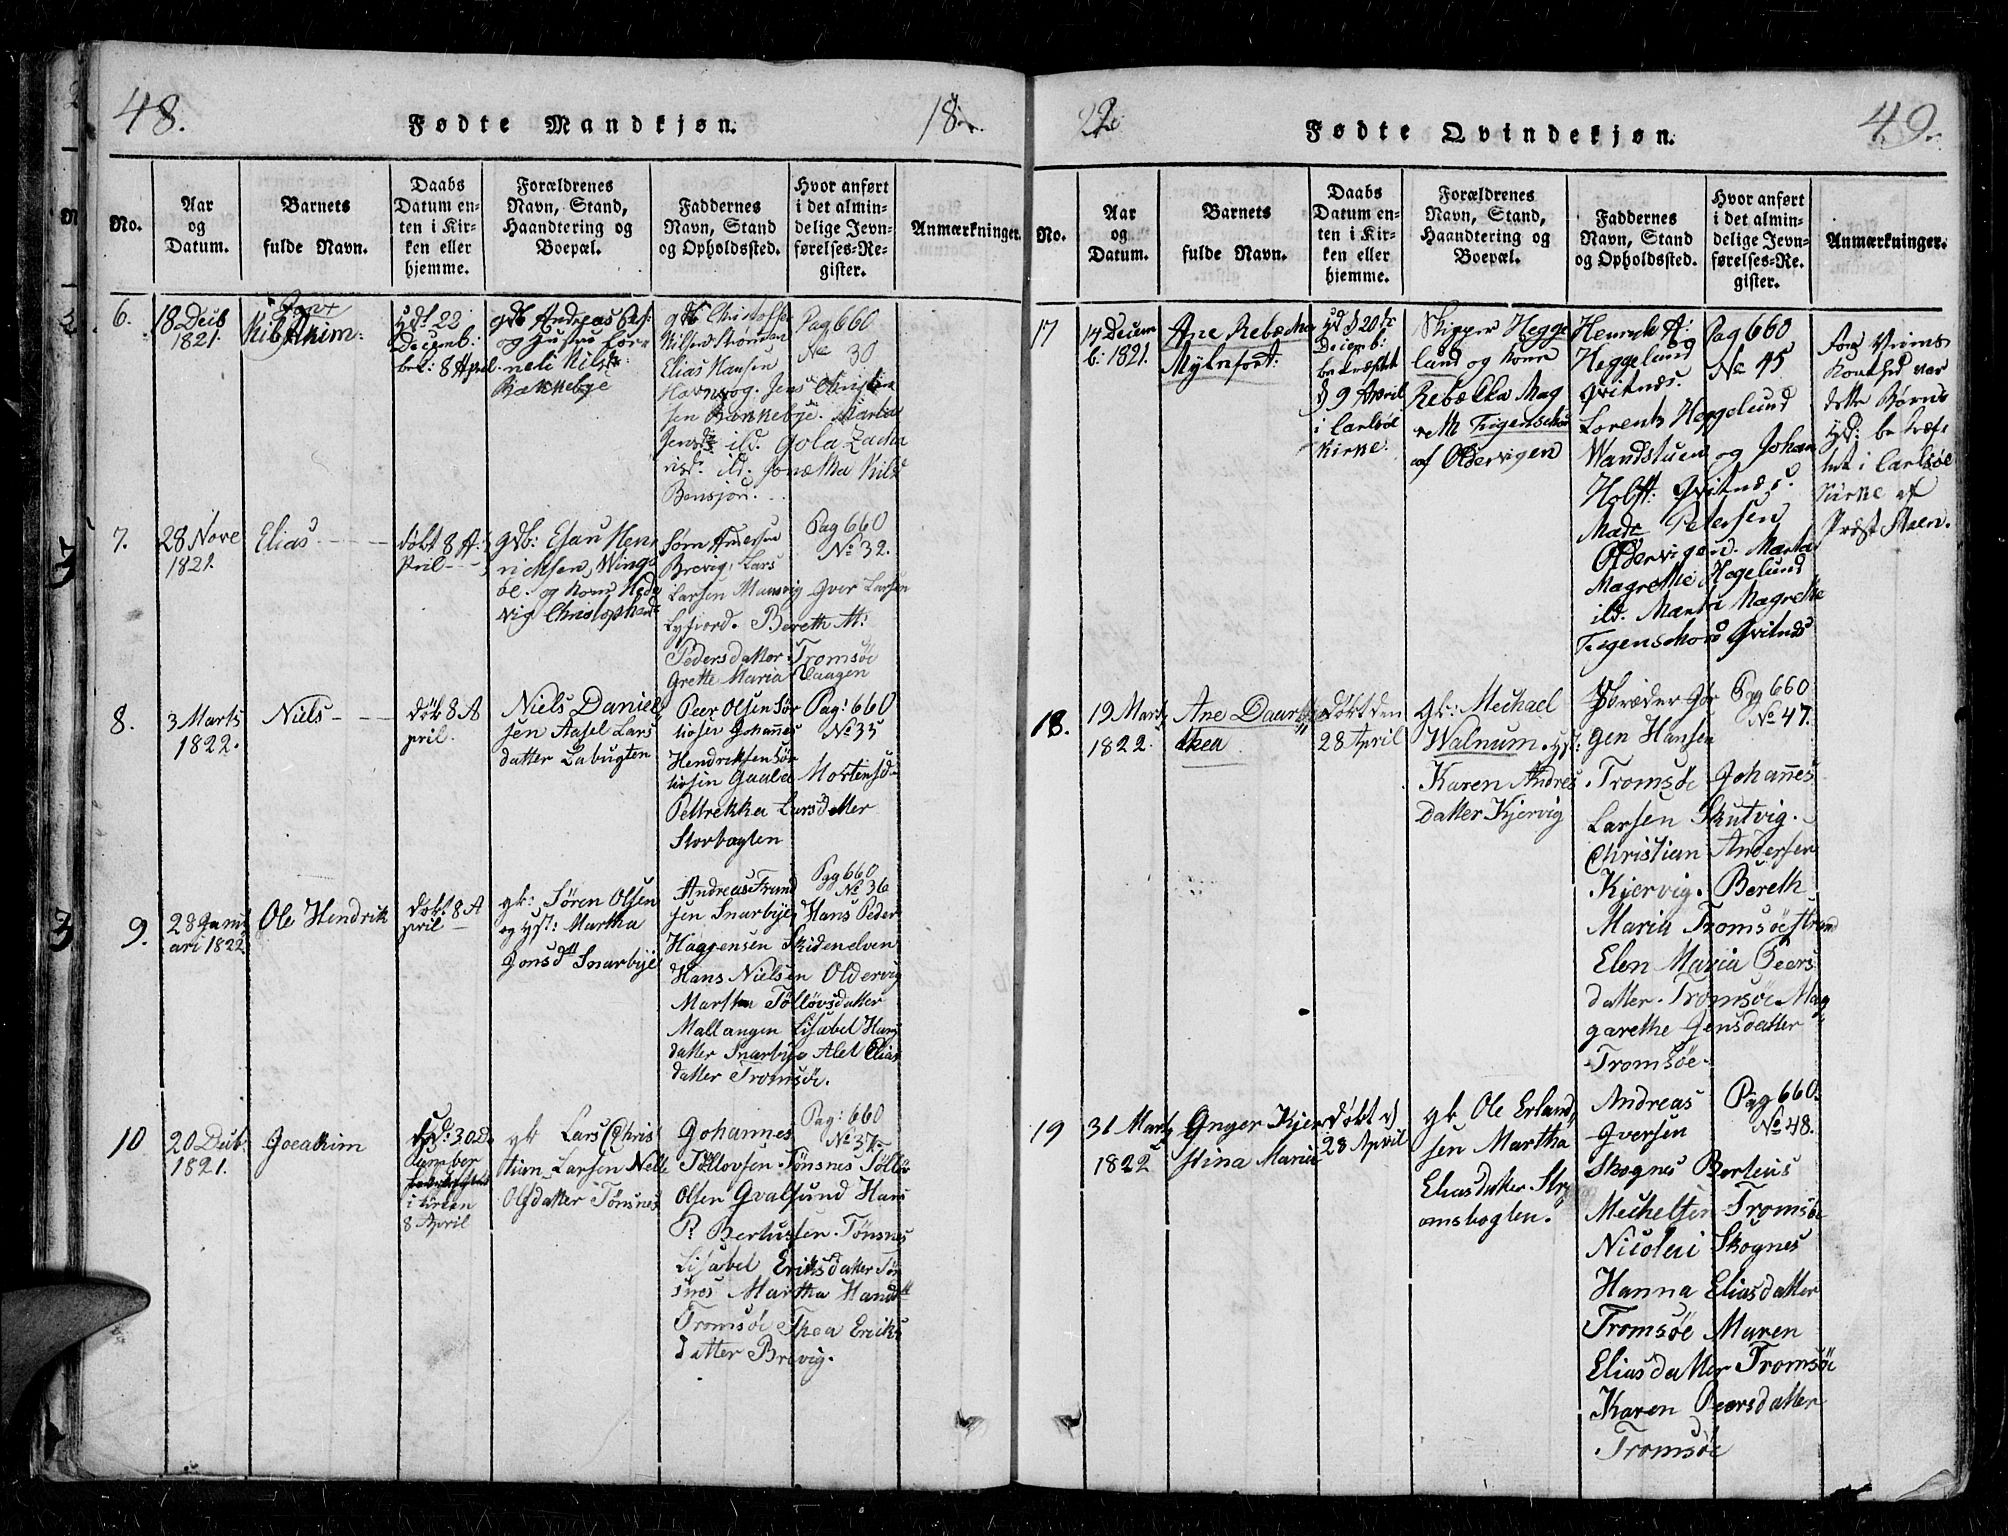 48.
Fødte Mandkjøn.
18
No.
Aar
og
Datum.
Barnets
fulde Navn.
Daabs
Datum en-
ten i Kir-
ken eller
hjemme.
Forældrenes
Navn, Stand,
Haandtering og
Boepæl.
Faddernes
Navn, Stand
og Opholdssted.
Hvor anført
i det almin-
delige Jevn-
førelses-Re-
gister.
Anmærkninger.
6.
18 Decb
1821.
22
Decemb:
bek: 8 April
gdb Andreas
og Hustru Cor
neli Nilsdr
Bakkebye
Christoffer
Elias Hansen
Havnsog. Jens Christia
sen Bakkebye. Martha
Jensdr ild. Gola Zacha
risd. ild. Jonetha Nilsd
Bensjor.
Pag 660
No 30
7.
28 Nove
1821.
Elias
døbt 8 A:
pril
gdb: Esau Hen
richsen, Wing
be. og Kone Hed
vig Christophersd
Sørn Andersen
Brevig, Lars
Larsen Maasvig Iver Larsen
Lyfiord. Bereth M:
Pedersdatter Tromsöe
Grette Maria Claagen
Pag 660
No 32.
8.
3 Marts
1822.
Niels
døb 8 A
pril.
Niels Daniel
sen Aasel Lars
datter Labugten
Peer Olsen Sör
Johannes
Hendriksen Sör
Gaala Mortensd
Pettrekka Larsdatter
Storbogten
Pag: 660
No 35
9.
28 Janu
ari 1822
Ole Hendrik
døbt 8 A
pril
gk: Sören Olsen
og Hst: Martha
Jonsdtt Snarbye
Andreas Trund
sen Snarbye, Hans Peder
Haggensen Skidenelven
Hans Nielsen Oldervig
Martha Töllövsdatter
Mallangen Lisabel Hans
datter Snarbye Alet Elias
datter Tromsöe.
Pag 660
No 36
10
20 Decb.
1821.
Joeakim
30 D
cember
i Kirken
8 April
gk Lars Chris
tian Larsen Nelle
Olsdatter Tönsnes
Johannes
Töllovsen Tönsnes Töllø
Olsen Gvalsund Hans
P. Bertusten Tönsnes
Lisabel Eriksdatter Tön
snes Martha Hansdtt
Tromsöe Thea Eriks
datter Brevig.
Pag: 660
No 37
22
Fødte Qvindekjøn.
49.
No.
Aar
og
Datum.
Barnets
fulde Navn.
Daabs
Datum en-
ten i Kir-
ken eller
hjemme.
Forældrenes
Navn, Stand,
Haandtering og
Boepæl.
Faddernes
Navn, Stand
og Opholdssted.
Hvor anført
i det almin-
delige Jevn-
førelses-Re-
gister.
Anmærkninger.
17
14 Decem
b: 1821.
Ane Rebecha
Mylnfort:
20
Decemb:
bekræftet
d 9 April
i Carlsöe
Kirke.
Skipper Hegge
land og Kone
Rebekka Mag
reth Figenschou
af Oldervigen
Henrich A:
Heggelund
Qvitnes.
Lorentz Heggelund
Wandstuen og Johan
Holst: Qvitnes.
Mads Petersen
Oldervigen. Marta
Magrethe Hegelund
ild. Marta Magrethe
Figenschou Qvitnes
Pag 660
No 45
For Veirets
Kont var
dette Børns
Hd: bekræf
tet i Carlsöe
Kirke af
Præst Steen.
18.
19 Marts
1822.
Ane Daar
thea
Døbt den
28 April
gk: Mechael
Walnum. Hst:
Karen Andres
datter Kjervig
Skræder Jör
gen Hansen
Tromsöe Johannes
Larsen Skutvig.
Christian Andersen
Kjervig. Bereth
Maria Tromsöe Strand
Elen Maria Peers
datter. Tromsöe Mag
garethe Jensdatter
Tromsöe
Pag 660
No 47.
19
31 Marts
1822
Inger Kjer
stina Marie
Døbt d
28 April
gk Ole Erland
sen Martha
Eliasdatter Str
omsbogten.
Andreas
Iversen
Skognes Berteus
Mechelsen Tromsöe
Nicolai Skognes
Hanna Eliasdatter
Tromsöe Maren
Eliasdatter Tromsöe
Karen Peersdatter
Tromsöe
Pag 660.
No 48.